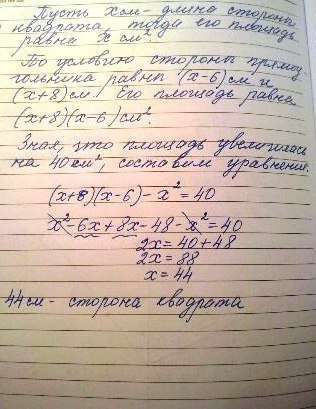 Пусть x см - длина стороны
квадрата, тогда его площадь
равна x см²
По условию стороны прямоу
гольника равны (x-6) см и
(x+8) см. Его площадь равна
(x+8)(x-6) см².
Зная, что площадь увеличилась
на 40 см², составим уравнение.
(x+8)(x-6) - x² = 40
x² - 6x + 8x - 48 - x² = 40
2x = 40 + 48
2x = 88
x = 44
44 см - сторона квадрата